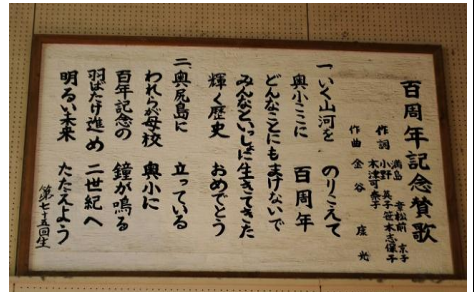 百周年記念賛歌
作詞
小野 英子 笹木志保子
作曲 金谷 庄光
一、いく山河を のりこえて
奥小ここに 百周年
どんなことにもまけないで
みんなといっしょに生きてきた
輝く歴史 おめでとう
二、奥尻島に 立っている
われらが母校 奥小に
百年記念の 鐘が鳴る
羽ばたけ進め 二世紀へ
明るい未来 たたえよう
第七十五回生